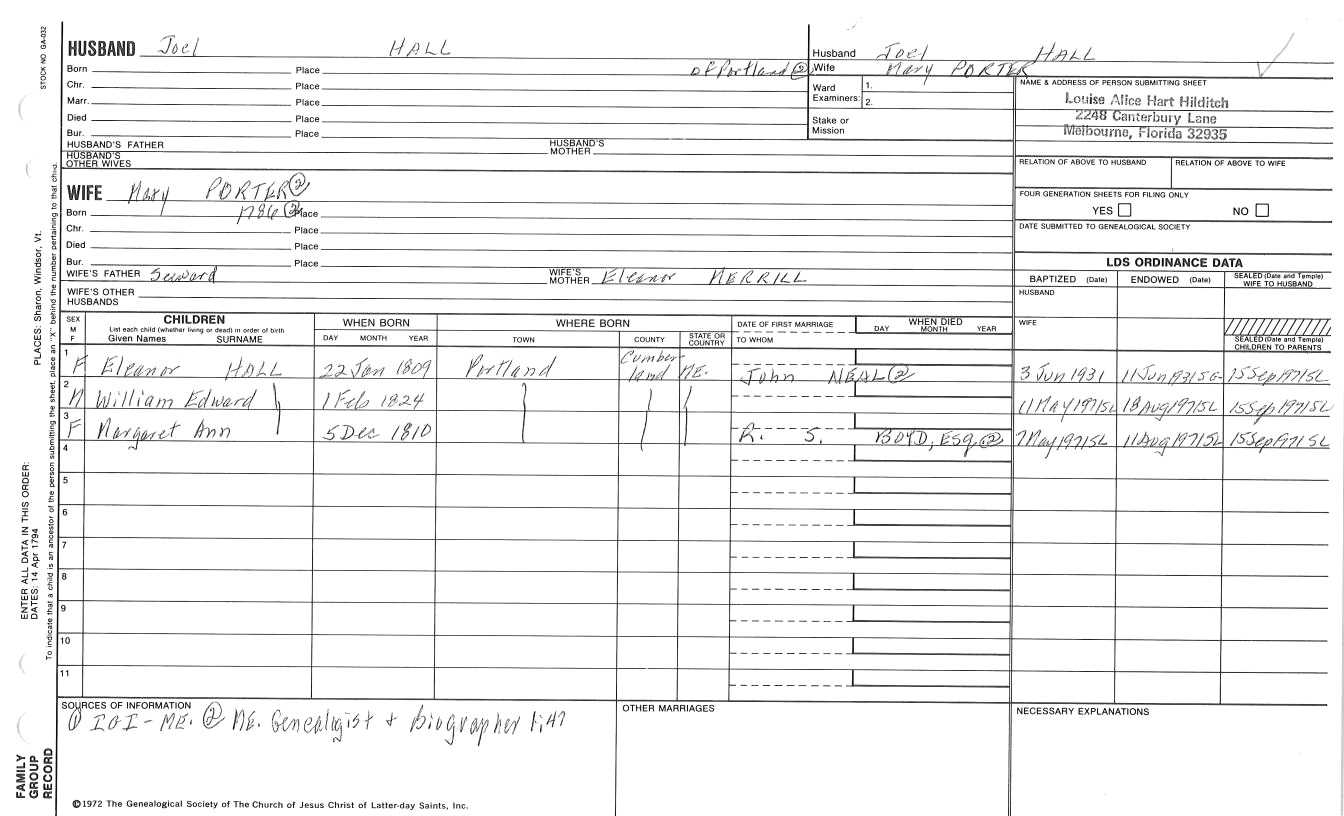 STOCK NO. GA-032
HUSBAND Joel HALL
Born Place of Portland ②
Chr. Place
Marr. Place
Died Place
Bur. Place
HUSBAND'S FATHER HUSBAND'S MOTHER
HUSBAND'S OTHER WIVES
Husband Joel HALL
Wife Mary PORTER
Ward Examiners: 1.
2.
Stake or Mission
NAME & ADDRESS OF PERSON SUBMITTING SHEET
Louise Alice Hart Hilditch
2248 Canterbury Lane
Melbourne, Florida 32935
RELATION OF ABOVE TO HUSBAND RELATION OF ABOVE TO WIFE
FOUR GENERATION SHEETS FOR FILING ONLY
YES NO
DATE SUBMITTED TO GENEALOGICAL SOCIETY
WIFE Mary PORTER ②
Born 1786 ② Place
Chr. Place
Died Place
Bur. Place
WIFE'S FATHER Seward WIFE'S MOTHER Eleanor MERRILL
WIFE'S OTHER HUSBANDS
LDS ORDINANCE DATA
BAPTIZED (Date) ENDOWED (Date) SEALED (Date and Temple) WIFE TO HUSBAND
HUSBAND
WIFE
SEALED (Date and Temple) CHILDREN TO PARENTS
SEX M F CHILDREN WHEN BORN WHERE BORN DATE OF FIRST MARRIAGE WHEN DIED
List each child (whether living or dead) in order of birth
Given Names SURNAME DAY MONTH YEAR TOWN COUNTY STATE OR COUNTRY TO WHOM DAY MONTH YEAR
1 F Eleanor HALL 22 Jan 1809 Portland Cumberland ME. John NEAL ② 3 Jun 1931 11 Jun 1931 SG 15 Sep 1971 SL
2 M William Edward 1 Feb 1824 11 May 1971 SL 18 Aug 1971 SL 15 Sep 1971 SL
3 F Margaret Ann 5 Dec 1810 R. S. BOYD, ESQ. ② 7 May 1971 SL 11 Aug 1971 SL 15 Sep 1971 SL
4
5
6
7
8
9
10
11
SOURCES OF INFORMATION
① IGI - ME. ② ME. Genealogist & Biographer 1:47
OTHER MARRIAGES
NECESSARY EXPLANATIONS
©1972 The Genealogical Society of The Church of Jesus Christ of Latter-day Saints, Inc.
FAMILY GROUP RECORD
ENTER ALL DATA IN THIS ORDER:
DATES: 14 Apr 1794
PLACES: Sharon, Windsor, Vt.
To indicate that a child is an ancestor of the person submitting the sheet, place an "X" behind the number pertaining to that child.